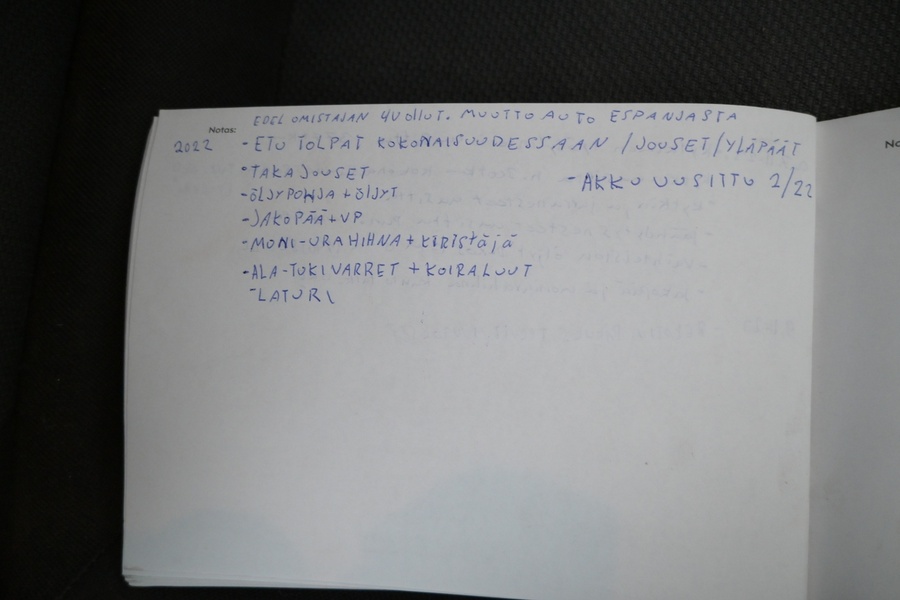 EDEL OMISTAJAN HUOLLUT. MUUTTOAUTO ESPANJASTA
Notas:
2022 -ETU TOLPAT KOKONAISUUDESSAAN /JOUSET/YLÄPÄÄT
-TAKAJOUSET
-AKKU UUSITTU 2/22
-ÖLJYPOHJA+ÖLJYT
-JAKOPÄÄ+VP
-MONI-URAHIHNA+KIRISTÄJÄ
-ALA-TUKIVARRET + KOIRALUUT
-LATURI
No